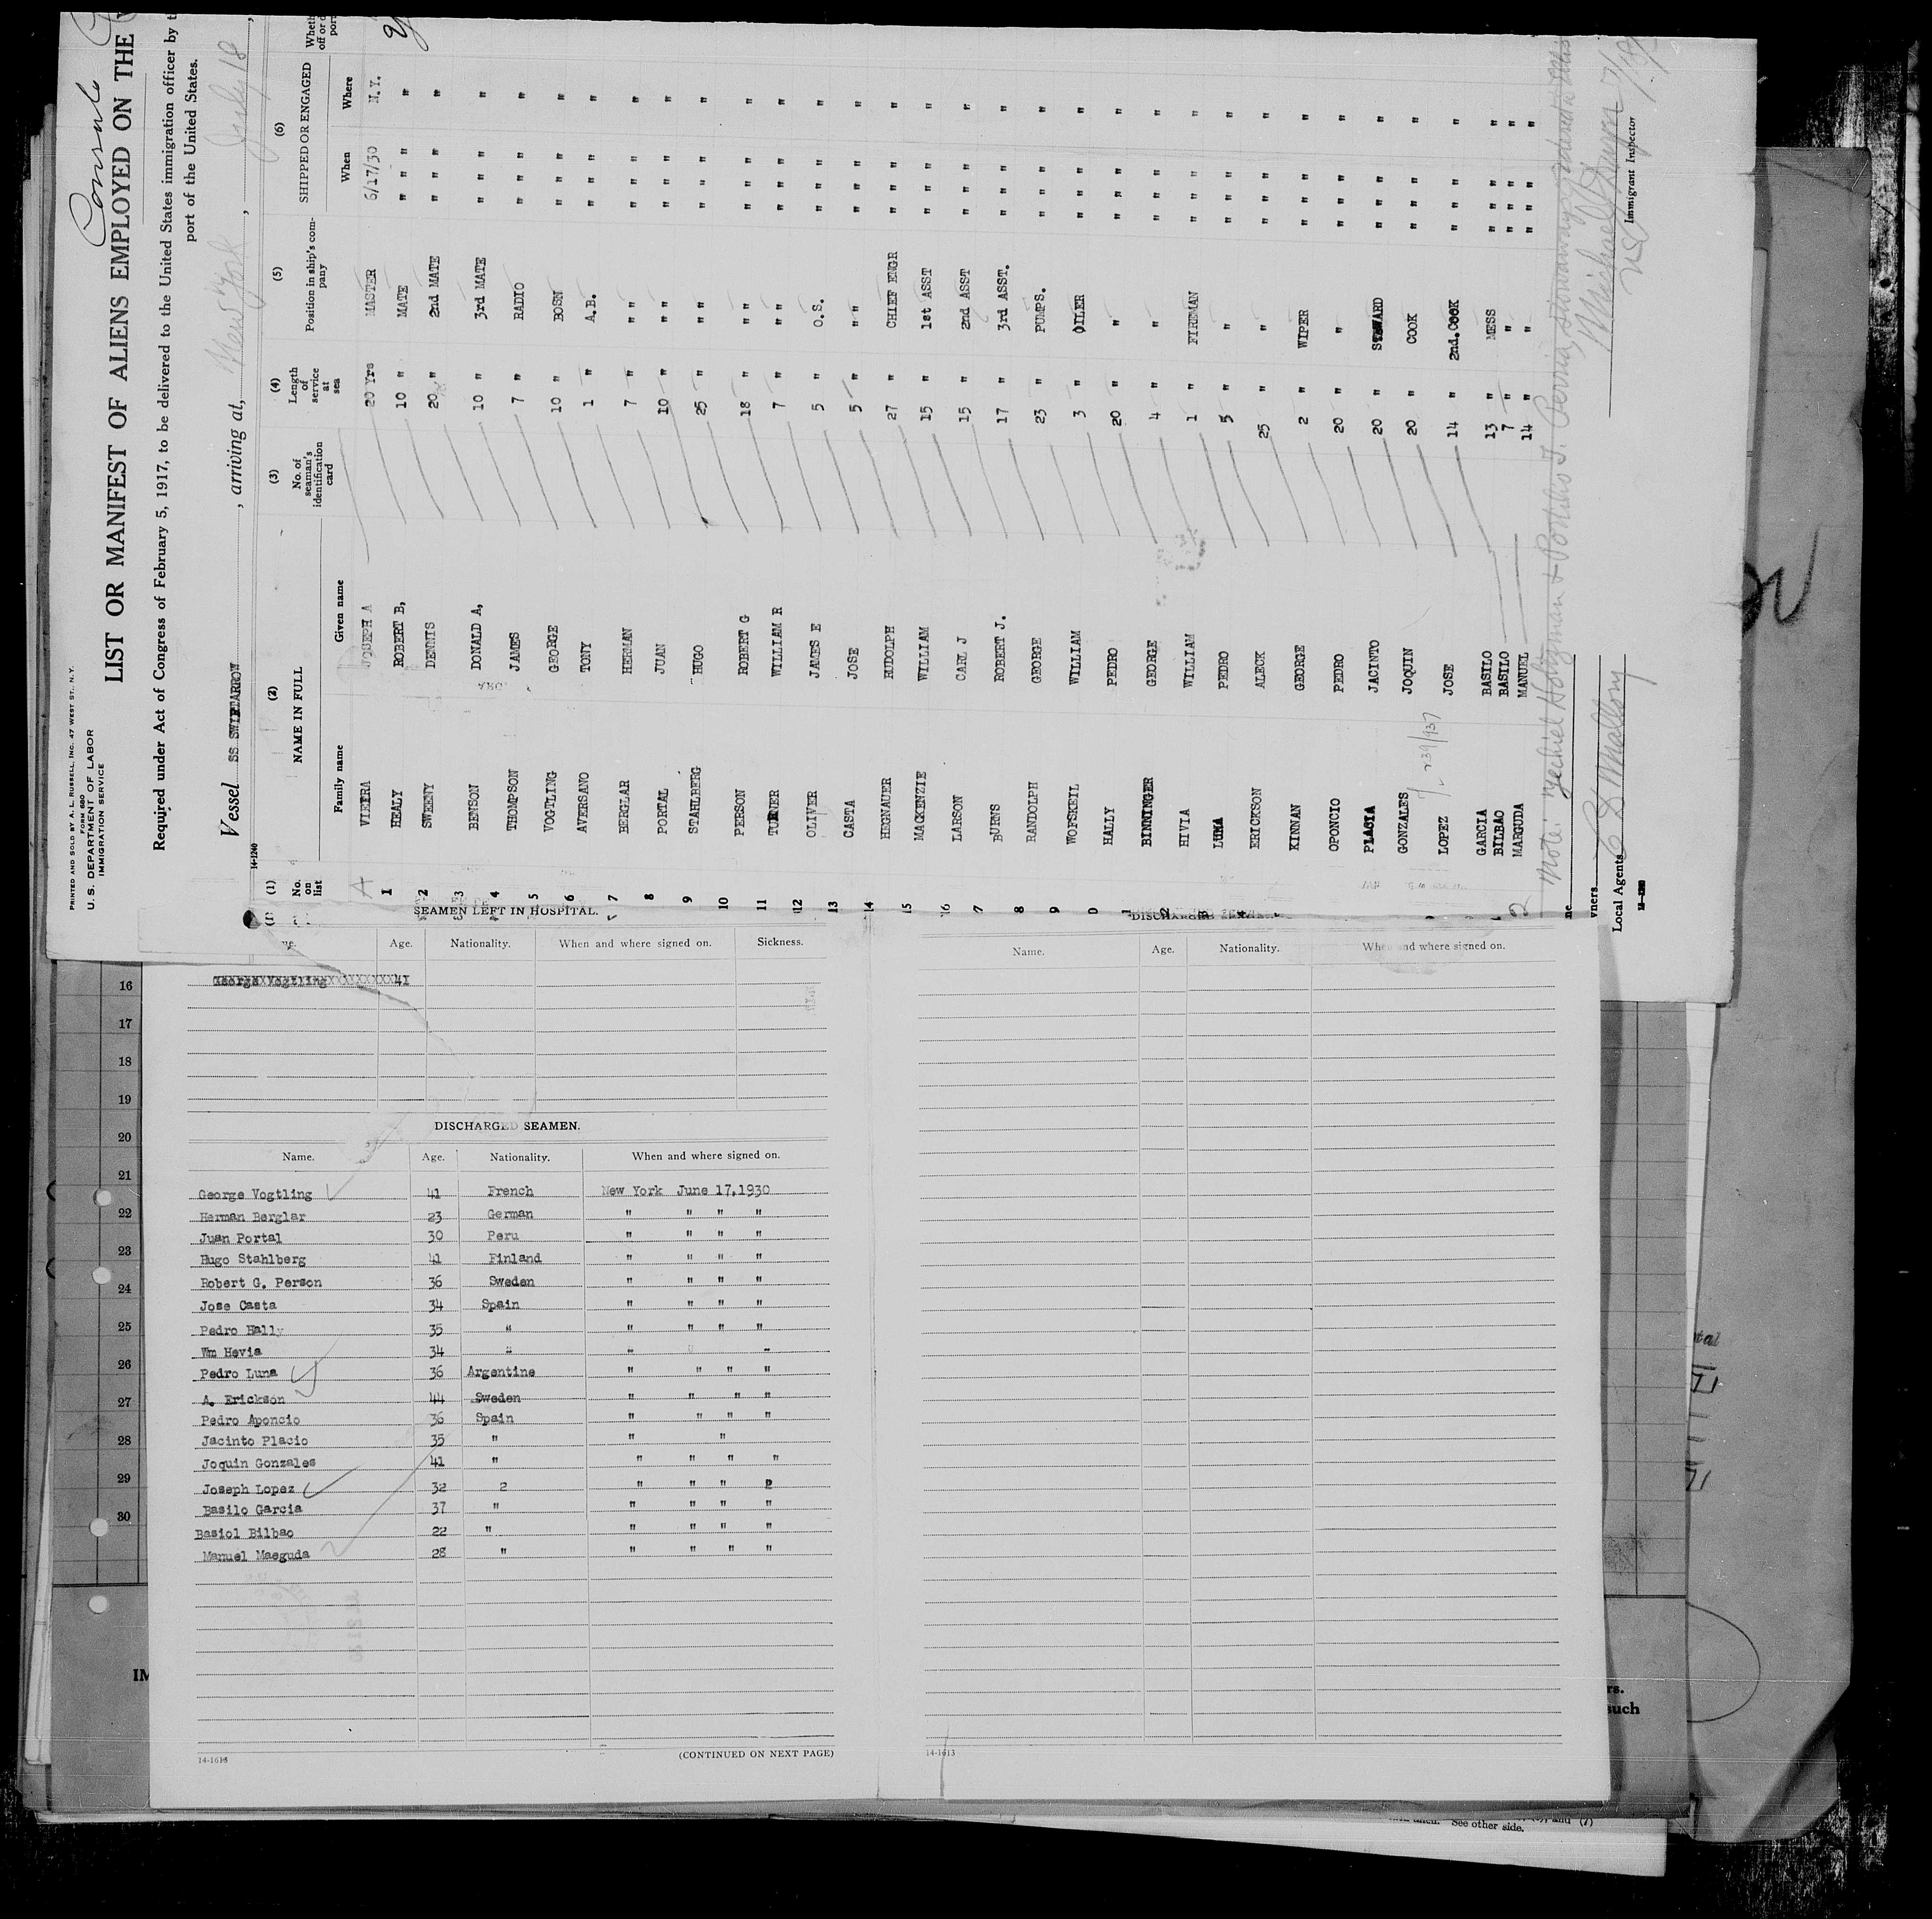 PRINTED AND SOLD BY A. L. RUSSELL, INC. 47 WEST ST. N. Y.
FORM 680
U. S. DEPARTMENT OF LABOR
IMMIGRATION SERVICE
LIST OR MANIFEST OF ALIENS EMPLOYED ON THE
Required under Act of Congress of February 5, 1917, to be delivered to the United States immigration officer by
port of the United States.
Vessel SS SWIFTARROW, arriving at, New York, July 18,
14-1240
(1) (2) (3) (4) (5) (6)
No. on list NAME IN FULL No. of seaman's identification card Length of service at sea Position in ship's company SHIPPED OR ENGAGED
Family name Given name When Where
VIEIRA JOSEPH A 20 Yrs MASTER 6/17/30 N.Y.
1 HEALY ROBERT B, 10 " MATE " " " "
2 SWEENY DENNIS 20 " 2nd MATE " " " "
3 BENSON DONALD A, 10 " 3rd MATE " " " "
4 THOMPSON JAMES 7 " RADIO " " " "
5 VOGTLING GEORGE 10 " BOSN " " " "
6 AVERSANO TONY 1 " A.B. " " " "
7 BERGLAR HERMAN 7 " " " " " " "
8 PORTAL JUAN 10 " " " " " " "
9 STAHLBERG HUGO 25 " " " " " " "
10 PERSON ROBERT G 18 " " " " " " "
11 TURNER WILLIAM R 7 " " " " " " "
12 OLIVER JAMES E 5 " O.S. " " " "
13 CASTA JOSE 5 " " " " " " "
14 HEGNAUER RUDOLPH 27 " CHIEF ENGR " " " "
15 MACKENZIE WILLIAM 15 " 1st ASST " " " "
16 LARSON CARL J 15 " 2nd ASST " " " "
7 BURNS ROBERT J. 17 " 3rd ASST. " " " "
8 RANDOLPH GEORGE 23 " PUMPS. " " " "
9 WOFSKEIL WILLIAM 3 " OILER " " " "
0 HALLY PEDRO 20 " " " " " "
1 BINNINGER GEORGE 4 " " " " " "
2 HIVIA WILLIAM 1 " FIREMAN " " " "
3 LUNA PEDRO 5 " " " " " "
4 ERICKSON ALECK 25 " " " " " "
KINNAN GEORGE 2 " WIPER " " " "
OPONCIO PEDRO 20 " " " " " "
PLACIA JACINTO 20 " STEWARD " " " "
GONZALES JOQUIN 20 " COOK " " " "
LOPEZ JOSE 14 " 2nd.COOK " " " "
GARCIA BASILO 13 " MESS " " " "
BILBAO BASILO 7 " " " " " "
MARGUDA MANUEL 14 " " " " " "
Immigrant Inspector
Local Agents
SEAMEN LEFT IN HOSPITAL.
Age. Nationality. When and where signed on. Sickness.
George Vogtling 41
DISCHARGED SEAMEN.
Name. Age. Nationality. When and where signed on.
George Vogtling 41 French New York June 17,1930
Herman Berglar 23 German " " " "
Juan Portal 30 Peru " " " "
Hugo Stahlberg 41 Finland " " " "
Robert G. Person 36 Sweden " " " "
Jose Casta 34 Spain " " " "
Pedro Hally 35 " " " " "
Wm Hevia 34 " " " "
Pedro Luna 36 Argentine " " " "
A. Erickson 44 Sweden " " " "
Pedro Aponcio 36 Spain " " " "
Jacinto Placio 35 " " "
Joquin Gonzales 41 " " " " "
Joseph Lopez 32 2 " " " 2
Basilo Garcia 37 " " " " "
Basiol Bilbao 22 " " " " "
Manuel Maeguda 28 " " " " "
14-1613
(CONTINUED ON NEXT PAGE)
Name. Age. Nationality. When and where signed on.
14-1613
16
17
18
19
20
21
22
23
24
25
26
27
28
29
30
IM
rs.
such
See other side.